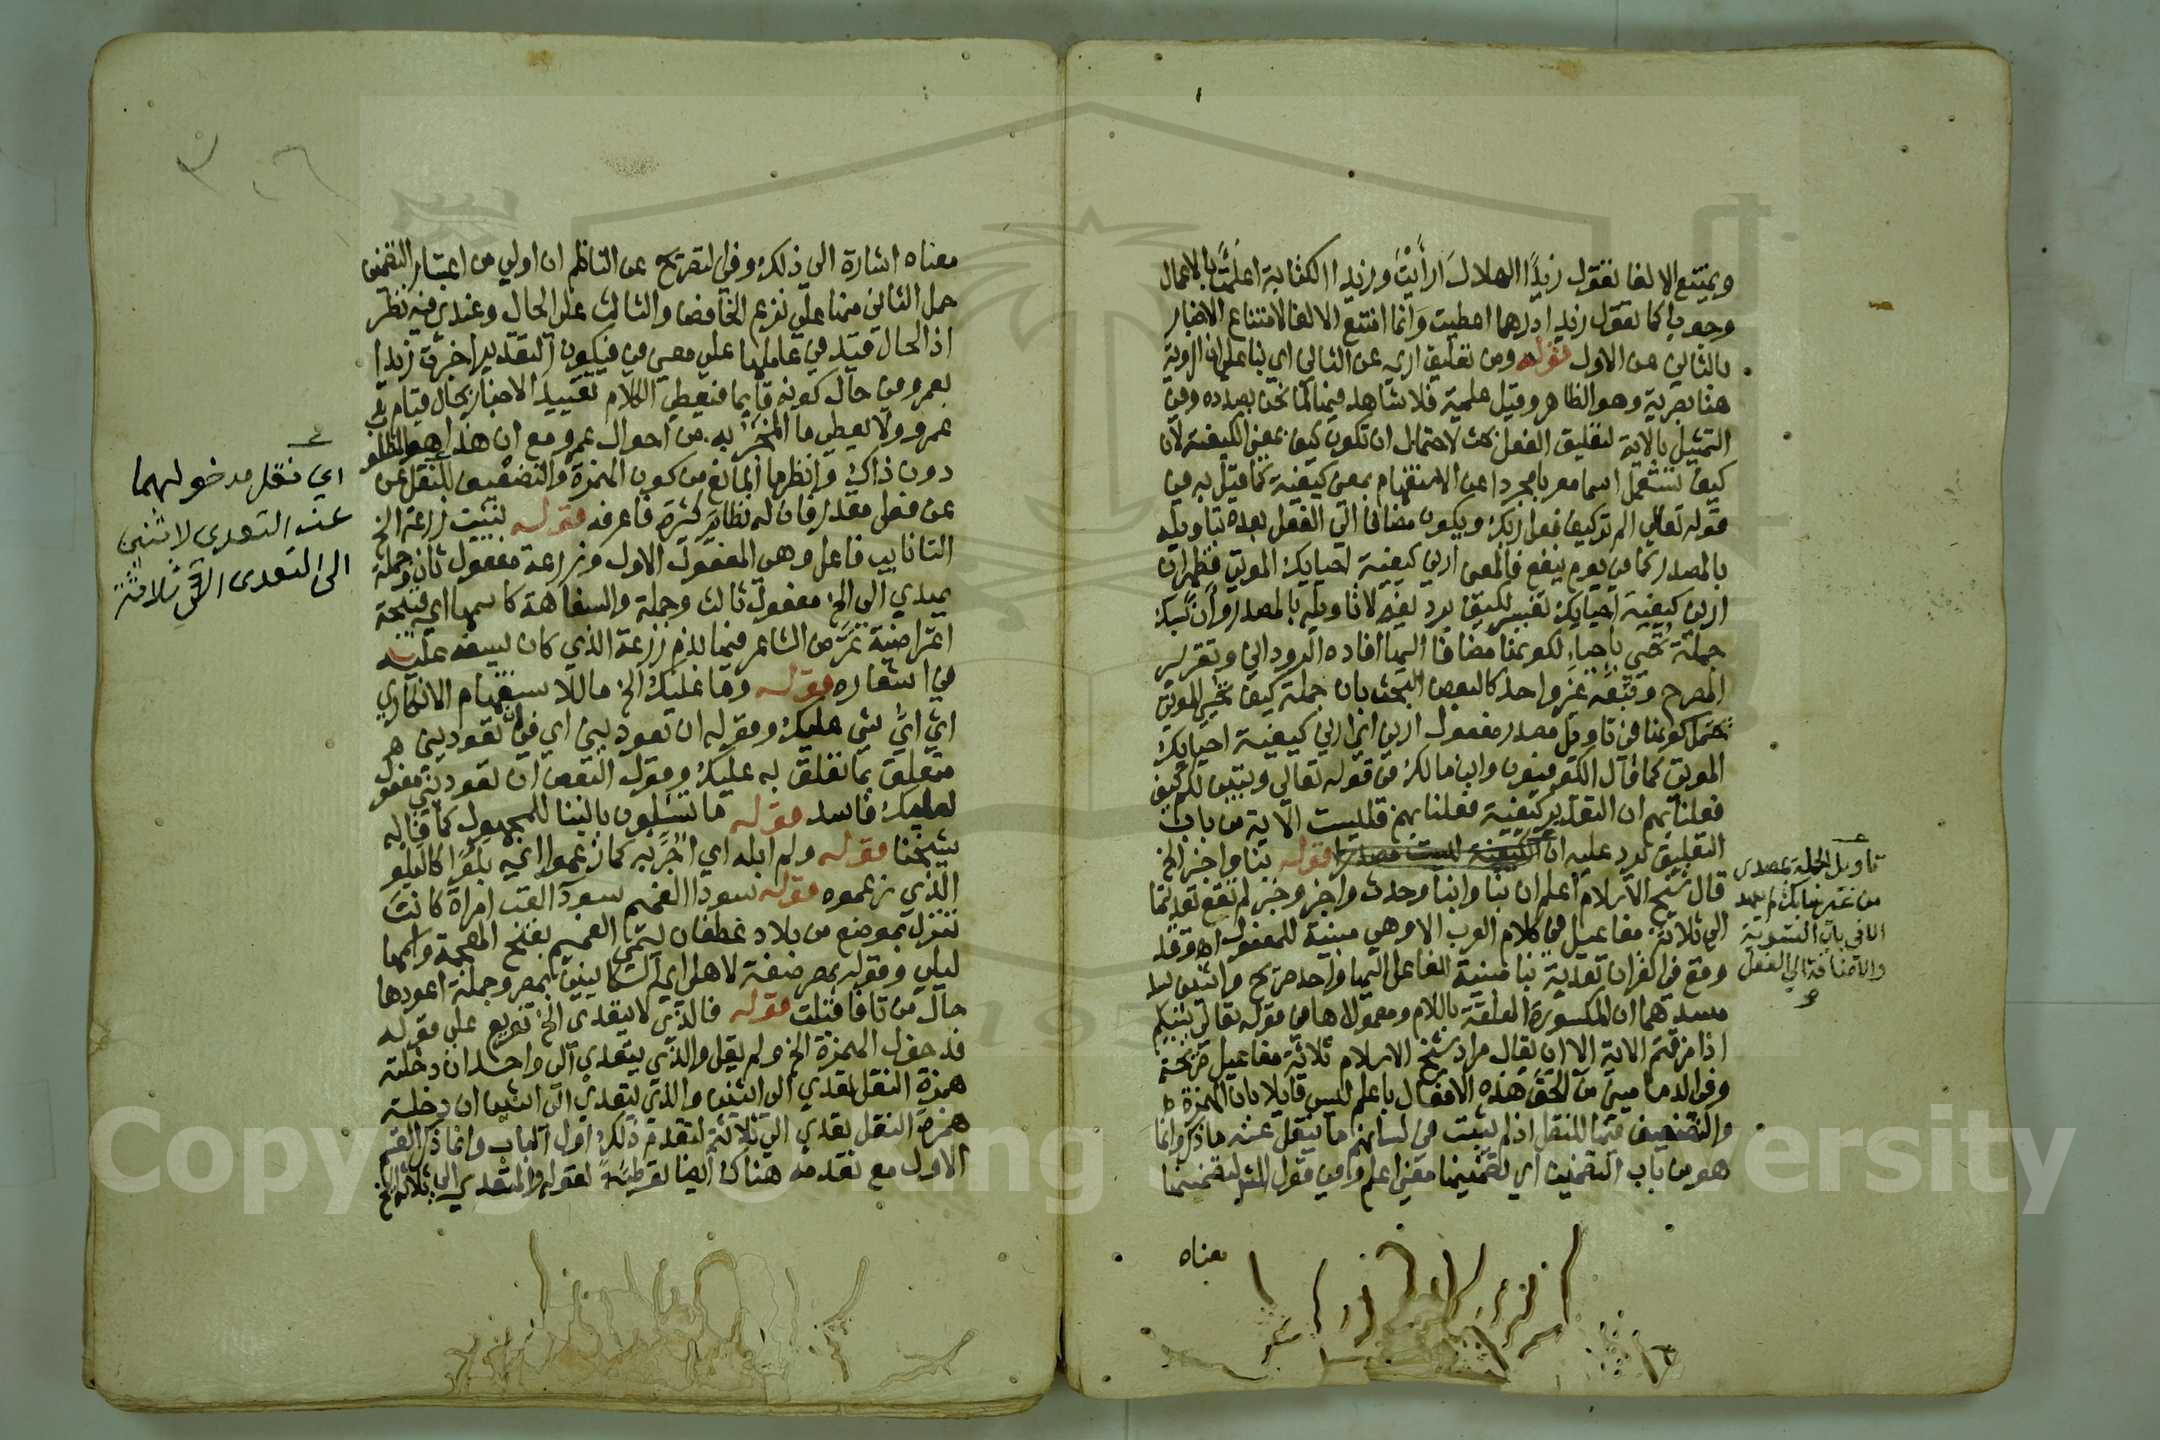 ويمتنع الالغا فتقول زيدًا الهلالَ ارأَيْتَ وزيدا الكفاية اعلمت بالاعمال
وجوبا كما تقول زيدا درهما اعطيت وانما امتنع الالغا لامتناع الاخبار
بالثاني عن الاول قوله ومن تعليق ارى عن الثاني اي بنا على ان الروية
هنا بصرية وهو الظاهر وقيل علمية فلا شاهد فيها لما نحن بصدده وفي
التمثيل بالاية لتعليق الفعل بحث لاحتمال ان تكون كيف بمعنى الكيفية لان
كيف تستعمل اسما معربا مجردا عن الاستفهام بمعنى كيفية كما قيل به في
قوله تعالى الم تر كيف فعل ربك ويكون مضافا الى الفعل بعده بتاويله
بالمصدر كما في يوم ينفع فالمعنى ارني كيفية احيايك الموتى فظهر ان
ارني كيفية احيايك تفسير لكيف برد لفه لا تاويله بالمصدر وان سبك
جملة تحيي باحياء لكونها مضافا اليها افاده الروداني وتقرير
المصرح وتبعه غير واحد كالبعض البحث بان جملة كيف تحيي الموتى
تحتمل كونها في تاويل مصدر مفعول ارني اي ارني كيفية احيايك
الموتى كما قال الكوفيون وابن مالك في قوله تعالى وتبين لكم كيف
فعلنا بهم ان التقدير كيفية فعلنا بهم فليست الاية من باب
التعليق يرد عليه ان الكيفية ليست مصدرا قوله نبا واخبر الخ
قال شيخ الاسلام اعلم ان نبا وانبا وحدث واخبر وخبر لم تقع تعديتها
الى ثلاثة مفاعيل في كلام العرب الا وهي مبنية للمفعول اه وقد
وقع في القران تعدية نبا مبنية للفاعل اليها واحد صريح واثنين سد
مسدهما ان المكسورة المعلقة باللام ومعمولاها في قوله تعالى ينبئكم
اذا مزقتم الاية الا ان يقال مراد شيخ الاسلام ثلاثة مفاعيل صريحة
وفي الدماميني من الحق هذه الافعال باعلم ليس قايلا بان الهمزة
والتضعيف فيها للنقل اذ لم يثبت في لسانهم ما ينقل عنه ما ذكر وانما
هو من باب التضمين اي تضمينها معنى اعلم وفي قول الش لتضمنها
معناه
تاويل الجملة بمصدر
من غير سابك لم يعهد
الا في باب التسوية
والاضافة الى الفعل
معناه اشارة الى ذلك وفي التصريح عن الناظم ان اولى من اعتبار التضمن
حمل الثاني منها على نزع الخافض والثالث على الحال وعندي فيه نظر
اذ الحال قيد في عاملها على معنى في فيكون التقدير اخبرت زيدا
بعمرو في حال كونه قايما فيعطي الكلام تقييد الاخبار بحال قيام
عمرو ولا يعطي ما المخبر به من احوال عمرو مع ان هذا هو المطلو
دون ذاك وانظر ما المانع من كون الهمزة والتضعيف للنقل عن
عن فعل مقدر فان له نظاير كثيرة فاعرفه قوله نبئت زرعة الخ
التا نايب فاعل وهي المفعول الاول وزرعة مفعول ثان وجملة
يهدي الي الخ مفعول ثالث وجملة والسفاهة كاسمها اي قبيحة
اعتراضية غرض الشاعر فيما بذم زرعة الذي كان يسفه عليه
في اشعاره قوله وما عليك الخ ما للاستفهام الانكاري
اي اي شي عليك وقوله ان تعوديني اي في ان تعوديني هو
متعلق بما تعلق به عليك وقول البعض ان تعوديني مفعول
لعليك فاسد قوله ما تسئلون بالبنا للمجهول كما قاله
شيخنا قوله ولم ابله اي اجربه كما زعموا اي بلوا كالبلو
الذي زعموه قوله سودا الغميم سودا لقب امراة كانت
تنزل بموضع من بلاد غطفان يسمى الغميم بفتح المعجمة واسمها
ليلى وقوله بمصر صفة لاهلي اي الكاينين بمصر وجملة اعودها
حال من تا فاقبلت قوله فالذي لا يتعدى الخ تفريع على قوله
فدخول الهمزة الخ ولم يقل والذي يتعدى الى واحد ان دخلته
همزة النقل تعدي الى اثنين والذي يتعدى الى اثنين ان دخلته
همزة النقل تعدي الى ثلاثة لتقدم ذلك اول الباب وانما ذكر القسم
الاول مع تقدمه هناك ايضا توطية لقوله والمتعدي الى ثلاثة الخ
اي نقل مدخولهما
عن التعدى لاثنين
الى التعدى الى ثلاثة